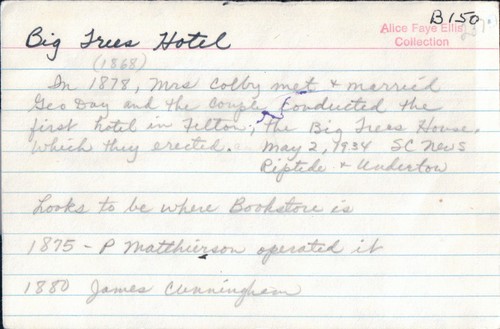 B150
Alice Faye Ellis
Collection
Big Trees Hotel
(1868)
In 1878, Mrs Colby met & married
Geo Day and the couple conducted the
first hotel in Felton, the Big Trees House,
which they erected. May 2, 1934 SC News
Riptide & Undertow
Looks to be where Bookstore is
1875 - P Matthierson operated it
1880 James Cunningham